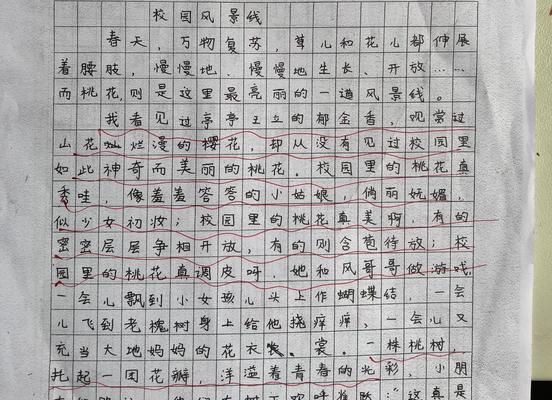 校园风景线
春天，万物复苏，草儿和花儿都伸展
着腰肢，慢慢地、慢慢地生长、开放……
而桃花，则是这里最亮丽的一道风景线。
我看见过亭亭玉立的郁金香，观赏过
山花灿烂漫的樱花，却从没有见过校园里
如此神奇而美丽的桃花。校园里的桃花真
秀哇，像羞羞答答的小姑娘，俏丽妩媚，
似少女初妆；校园里的桃花真美啊，有的
密密层层争相开放，有的则含苞待放；校
园里的桃花真调皮呀，她和风哥哥做游戏，
一会儿飘到小女孩儿头上作蝴蝶结，一会
儿飞到老槐树身上给他挠痒痒，一会儿又
充当大地妈妈的花衣裳。一株桃树，
扎起一团花瓣，洋溢着青春的光彩，小朋
这真是